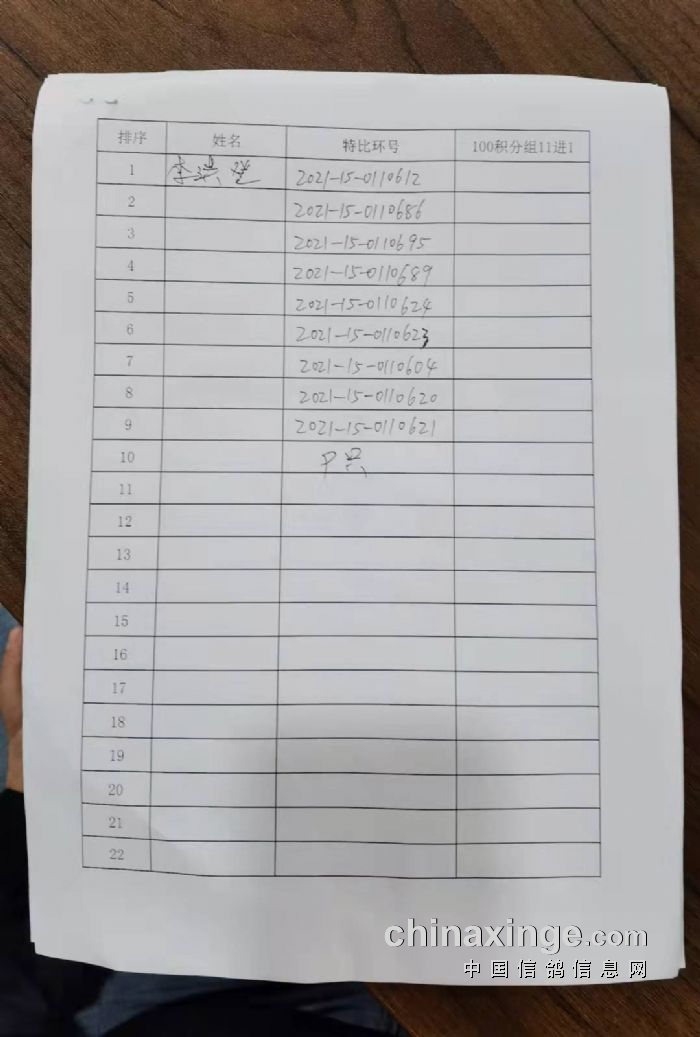 排序 姓名 特比环号 100积分组11进1
1 李洪 2021-15-0110612
2 2021-15-0110686
3 2021-15-0110695
4 2021-15-0110689
5 2021-15-0110624
6 2021-15-0110623
7 2021-15-0110604
8 2021-15-0110620
9 2021-15-0110621
10 只
11
12
13
14
15
16
17
18
19
20
21
22
chinaxinge.com
中国信鸽信息网